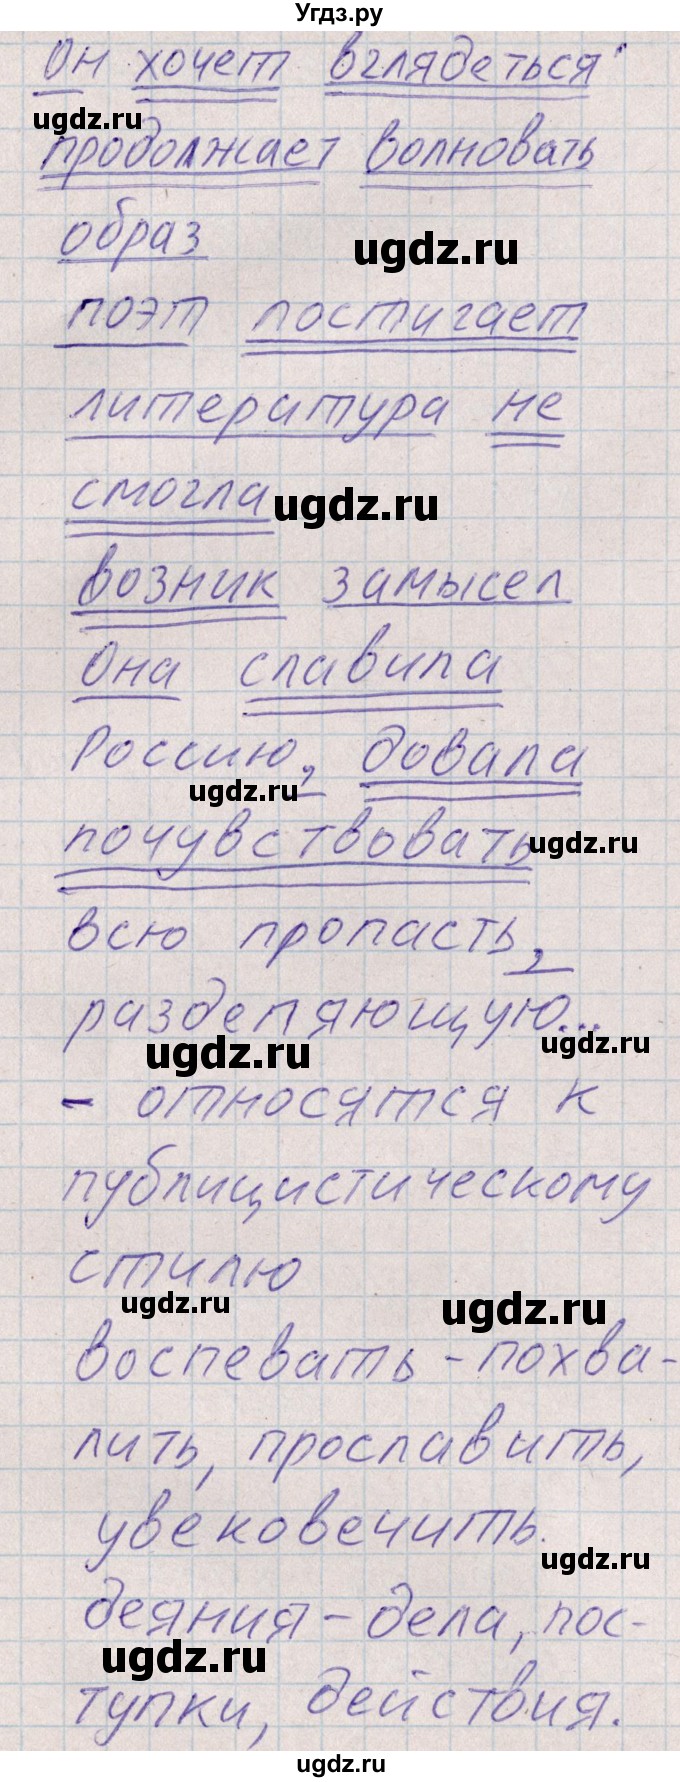 Угдз.ру
Он хочет вглядеться
ugdz.ru
продолжает волновать
образ
ugdz.ru
поэт постигает
литература не
смогла
ugdz.ru
возник замысел
Она славила
Россию, довала
ugdz.ru
почувствовать
ugdz.ru
всю пропасть,
разделяющую...
ugdz.ru
ugdz.ru
- относятся к
публицистическому
стилю
ugdz.ru
ugdz.ru
воспевать - похва-
лить, прославить,
увековечить.
ugdz.ru
деяния - дела, пос-
ugdz.ru
тупки, действия.
ugdz.ru